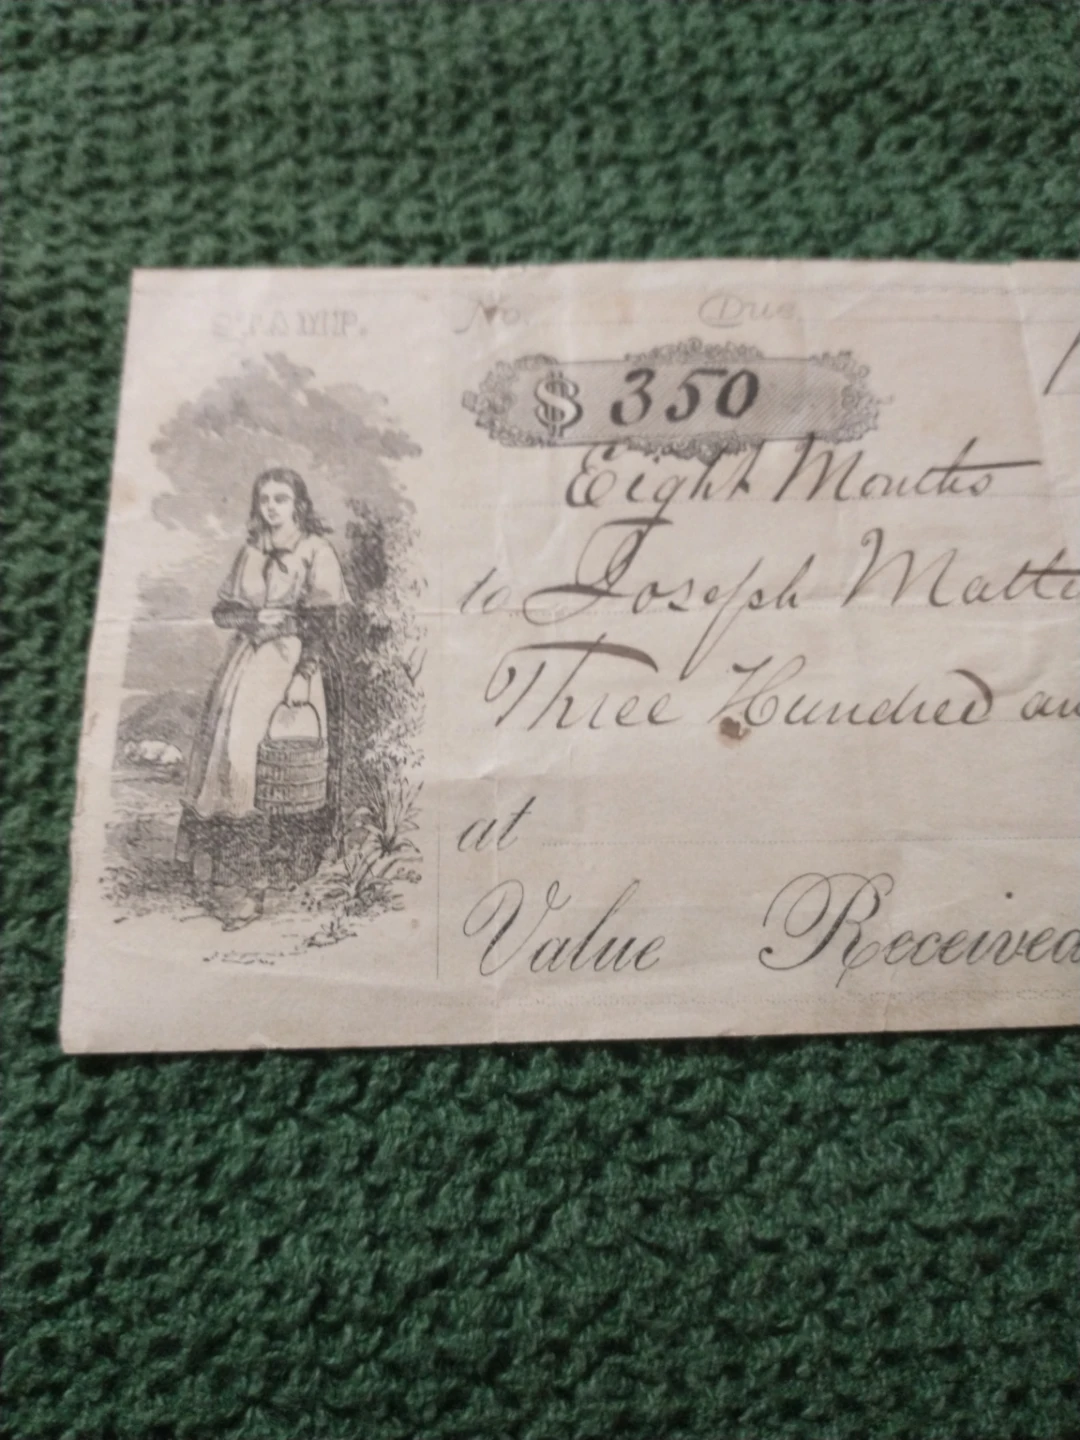 STAMP.
No. Due
$ 350
Eight Months
to Joseph
Three Hundred
at
Value Received